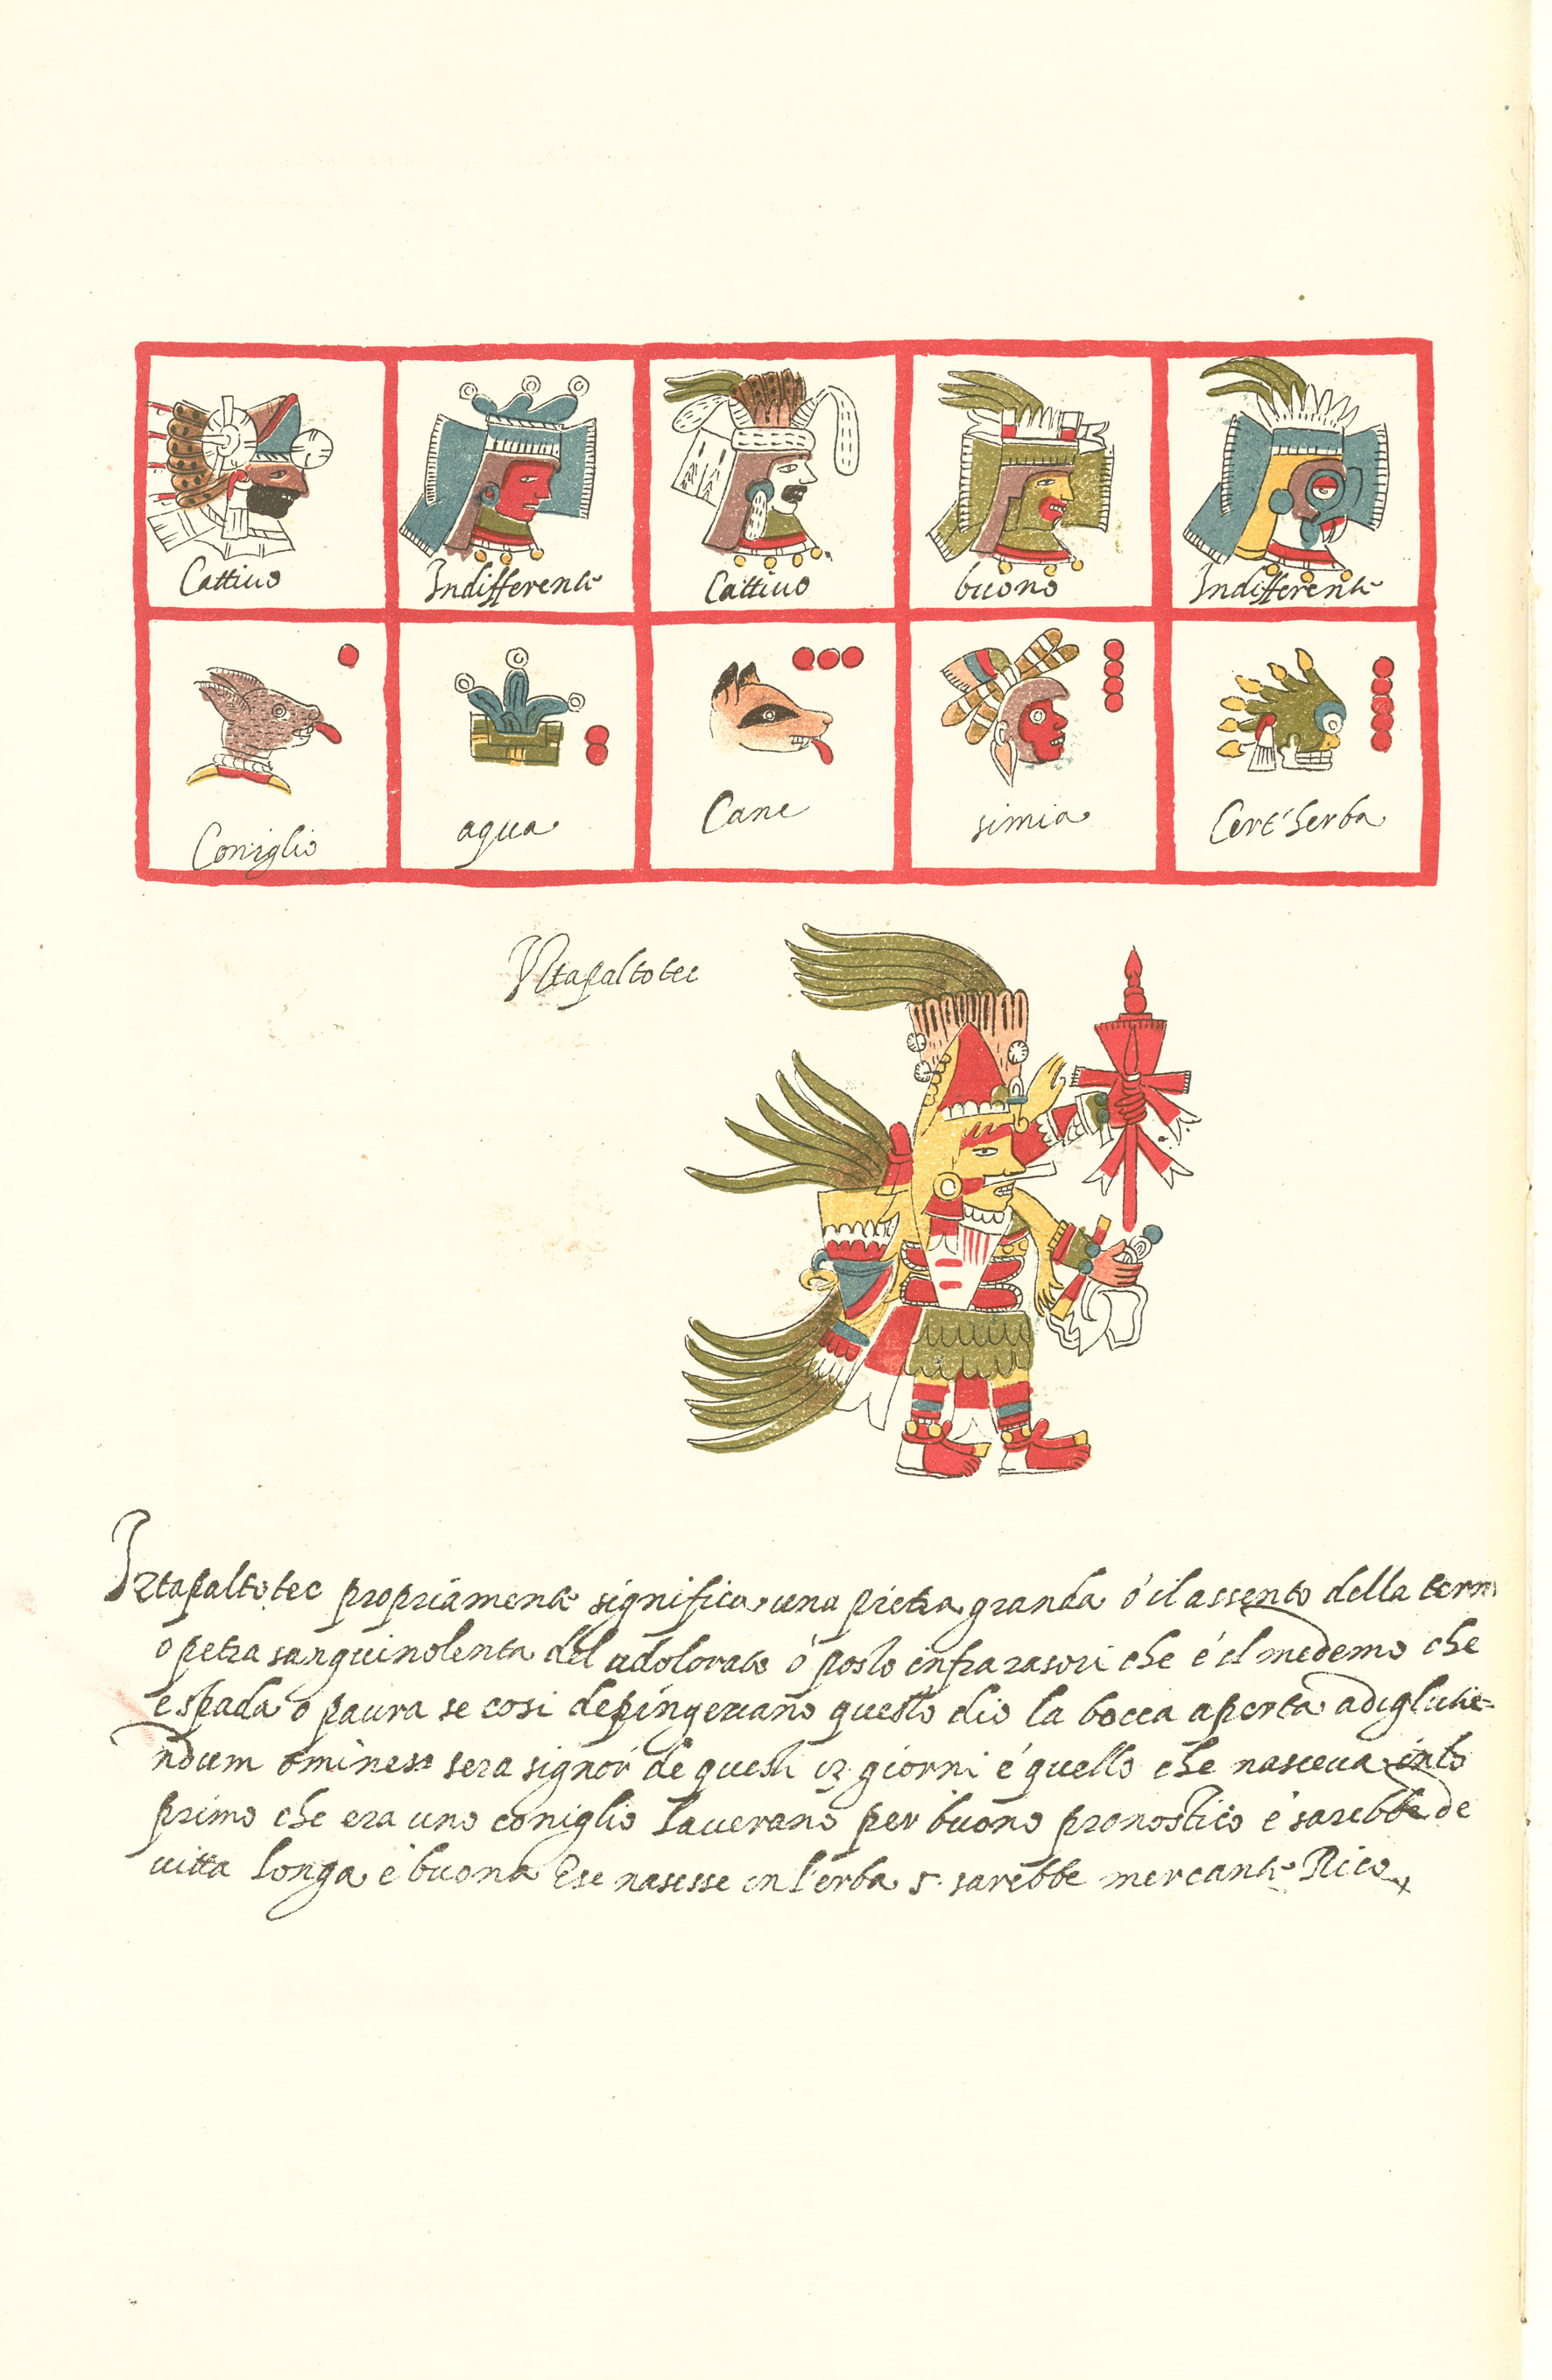 Cattiuo Indifferente Cattiuo buono Indifferente
Coniglio agua Cane simia Cert'herba
Yztapaltotec
Iztapaltotec propriamente significa una pietra granda o' il assento della terra
o petra sanguinolenta del adolorato o' posto infra rasori che e' il medemo che
espada o paura se cosi depingeuano questo dio la bocca aperta adiglutie-
ndum omines sera signor de questi 13 giorni e' quello che nasceua
primo che era uno coniglio l'auerano per buono pronostico e' sarebbe de
uitta longa e' buona E se nasesse in l'erba 5. sarebbe mercante Rico